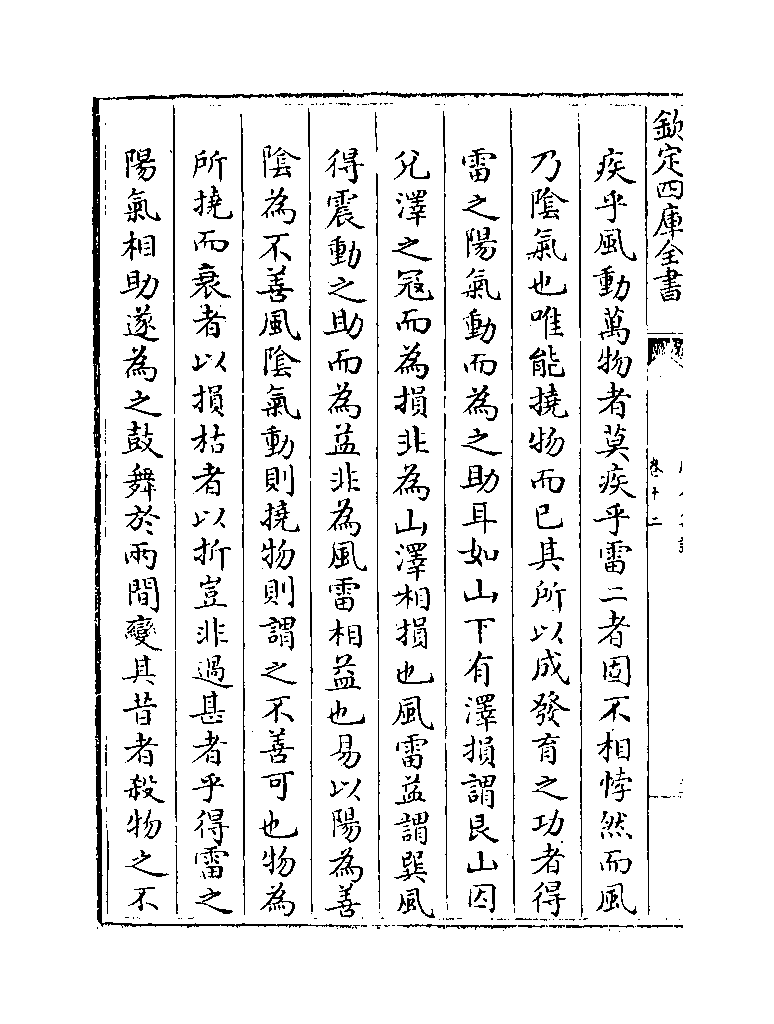 欽定四庫全書
卷十二
疾乎風動萬物者莫疾乎雷二者固不相悖然而風
乃陰氣也唯能撓物而已其所以成發育之功者得
雷之陽氣動而為之助耳如山下有澤損謂艮山因
兊澤之冦而為損非為山澤相損也風雷益謂巽風
得震動之助而為益非為風雷相益也易以陽為善
陰為不善風陰氣動則撓物則謂之不善可也物為
所撓而衰者以損枯者以折豈非過甚者乎得雷之
陽氣相助遂為之鼓舞於兩間變其昔者殺物之不